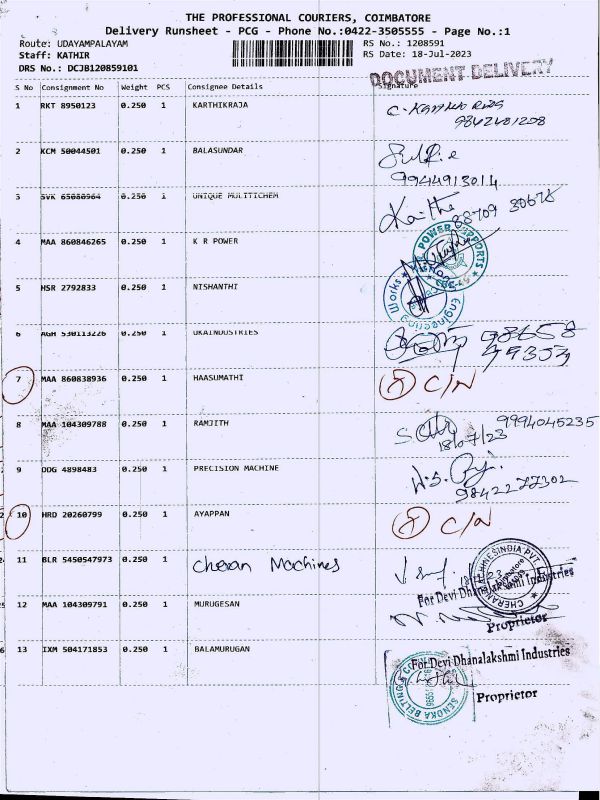 THE PROFESSIONAL COURIERS, COIMBATORE
Delivery Runsheet - PCG - Phone No.:0422-3505555 - Page No.:1
Route: UDAYAMPALAYAM RS No.: 1208591
Staff: KATHIR RS Date: 18-Jul-2023
DRS No.: DCJB120859101
DOCUMENT DELIVERY
S No Consignment No Weight PCS Consignee Details Signature
1 RKT 8950123 0.250 1 KARTHIKRAJA
2 KCM 50044501 0.250 1 BALASUNDAR
9944913014
3 SVK 65080964 0.250 1 UNIQUE MULITICHEM
4 MAA 860846265 0.250 1 K R POWER
5 HSR 2792833 0.250 1 NISHANTHI
6 AGH 530113226 0.250 1 UKAINDUSTRIES
98658
7 MAA 860838936 0.250 1 HAASUMATHI C/N
8 MAA 104309788 0.250 1 RAMJITH 9994045235
18/07/23
9 ODG 4898483 0.250 1 PRECISION MACHINE
9842277302
10 HRD 20260799 0.250 1 AYAPPAN C/N
11 BLR 5450547973 0.250 1 Cheran Machines
For Devi Dhanalakshmi Industries
12 MAA 104309791 0.250 1 MURUGESAN
Proprietor
13 IXM 504171853 0.250 1 BALAMURUGAN For Devi Dhanalakshmi Industries
Proprietor